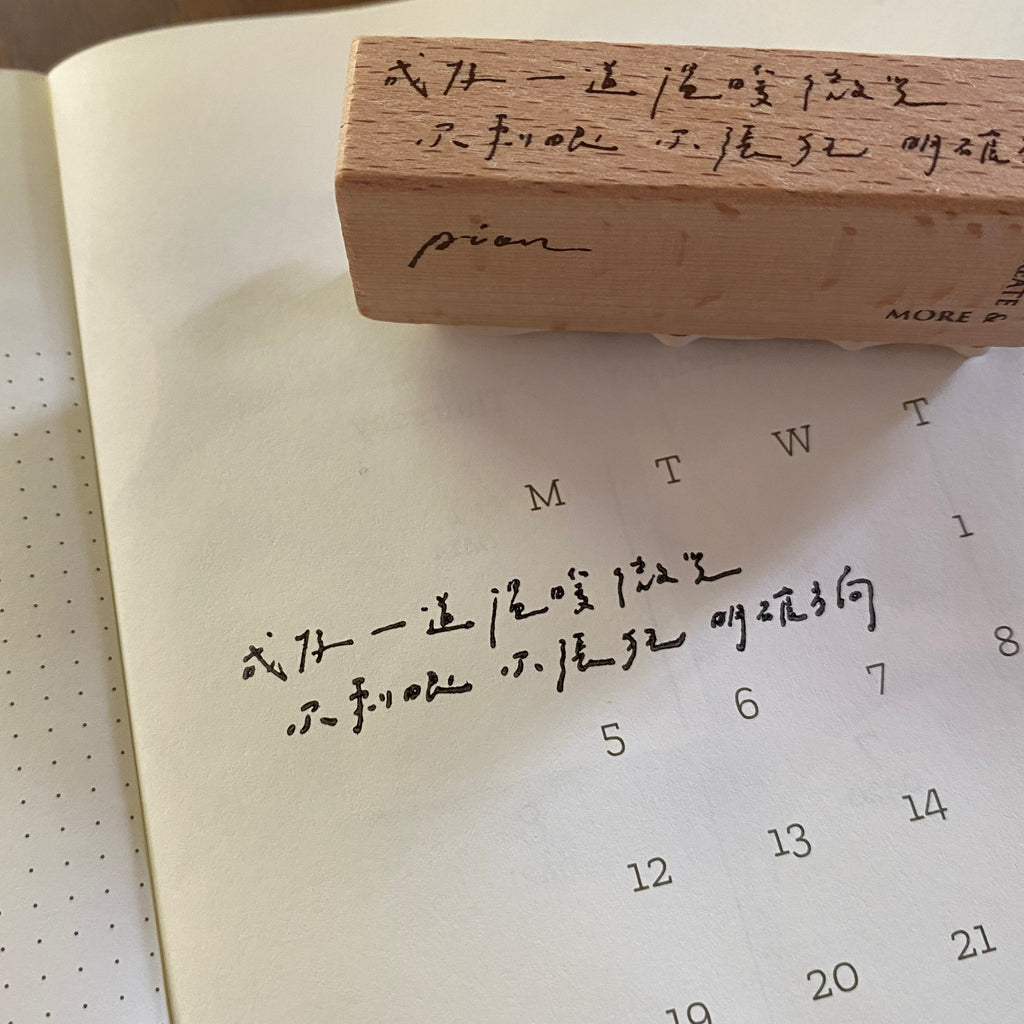 成為一道溫暖微光
不刺眼 不張狂 明確
pion
MORE &
M T W T
1
成為一道溫暖微光
不刺眼 不張狂 明確方向
5 6 7 8
12 13 14
19 20 21